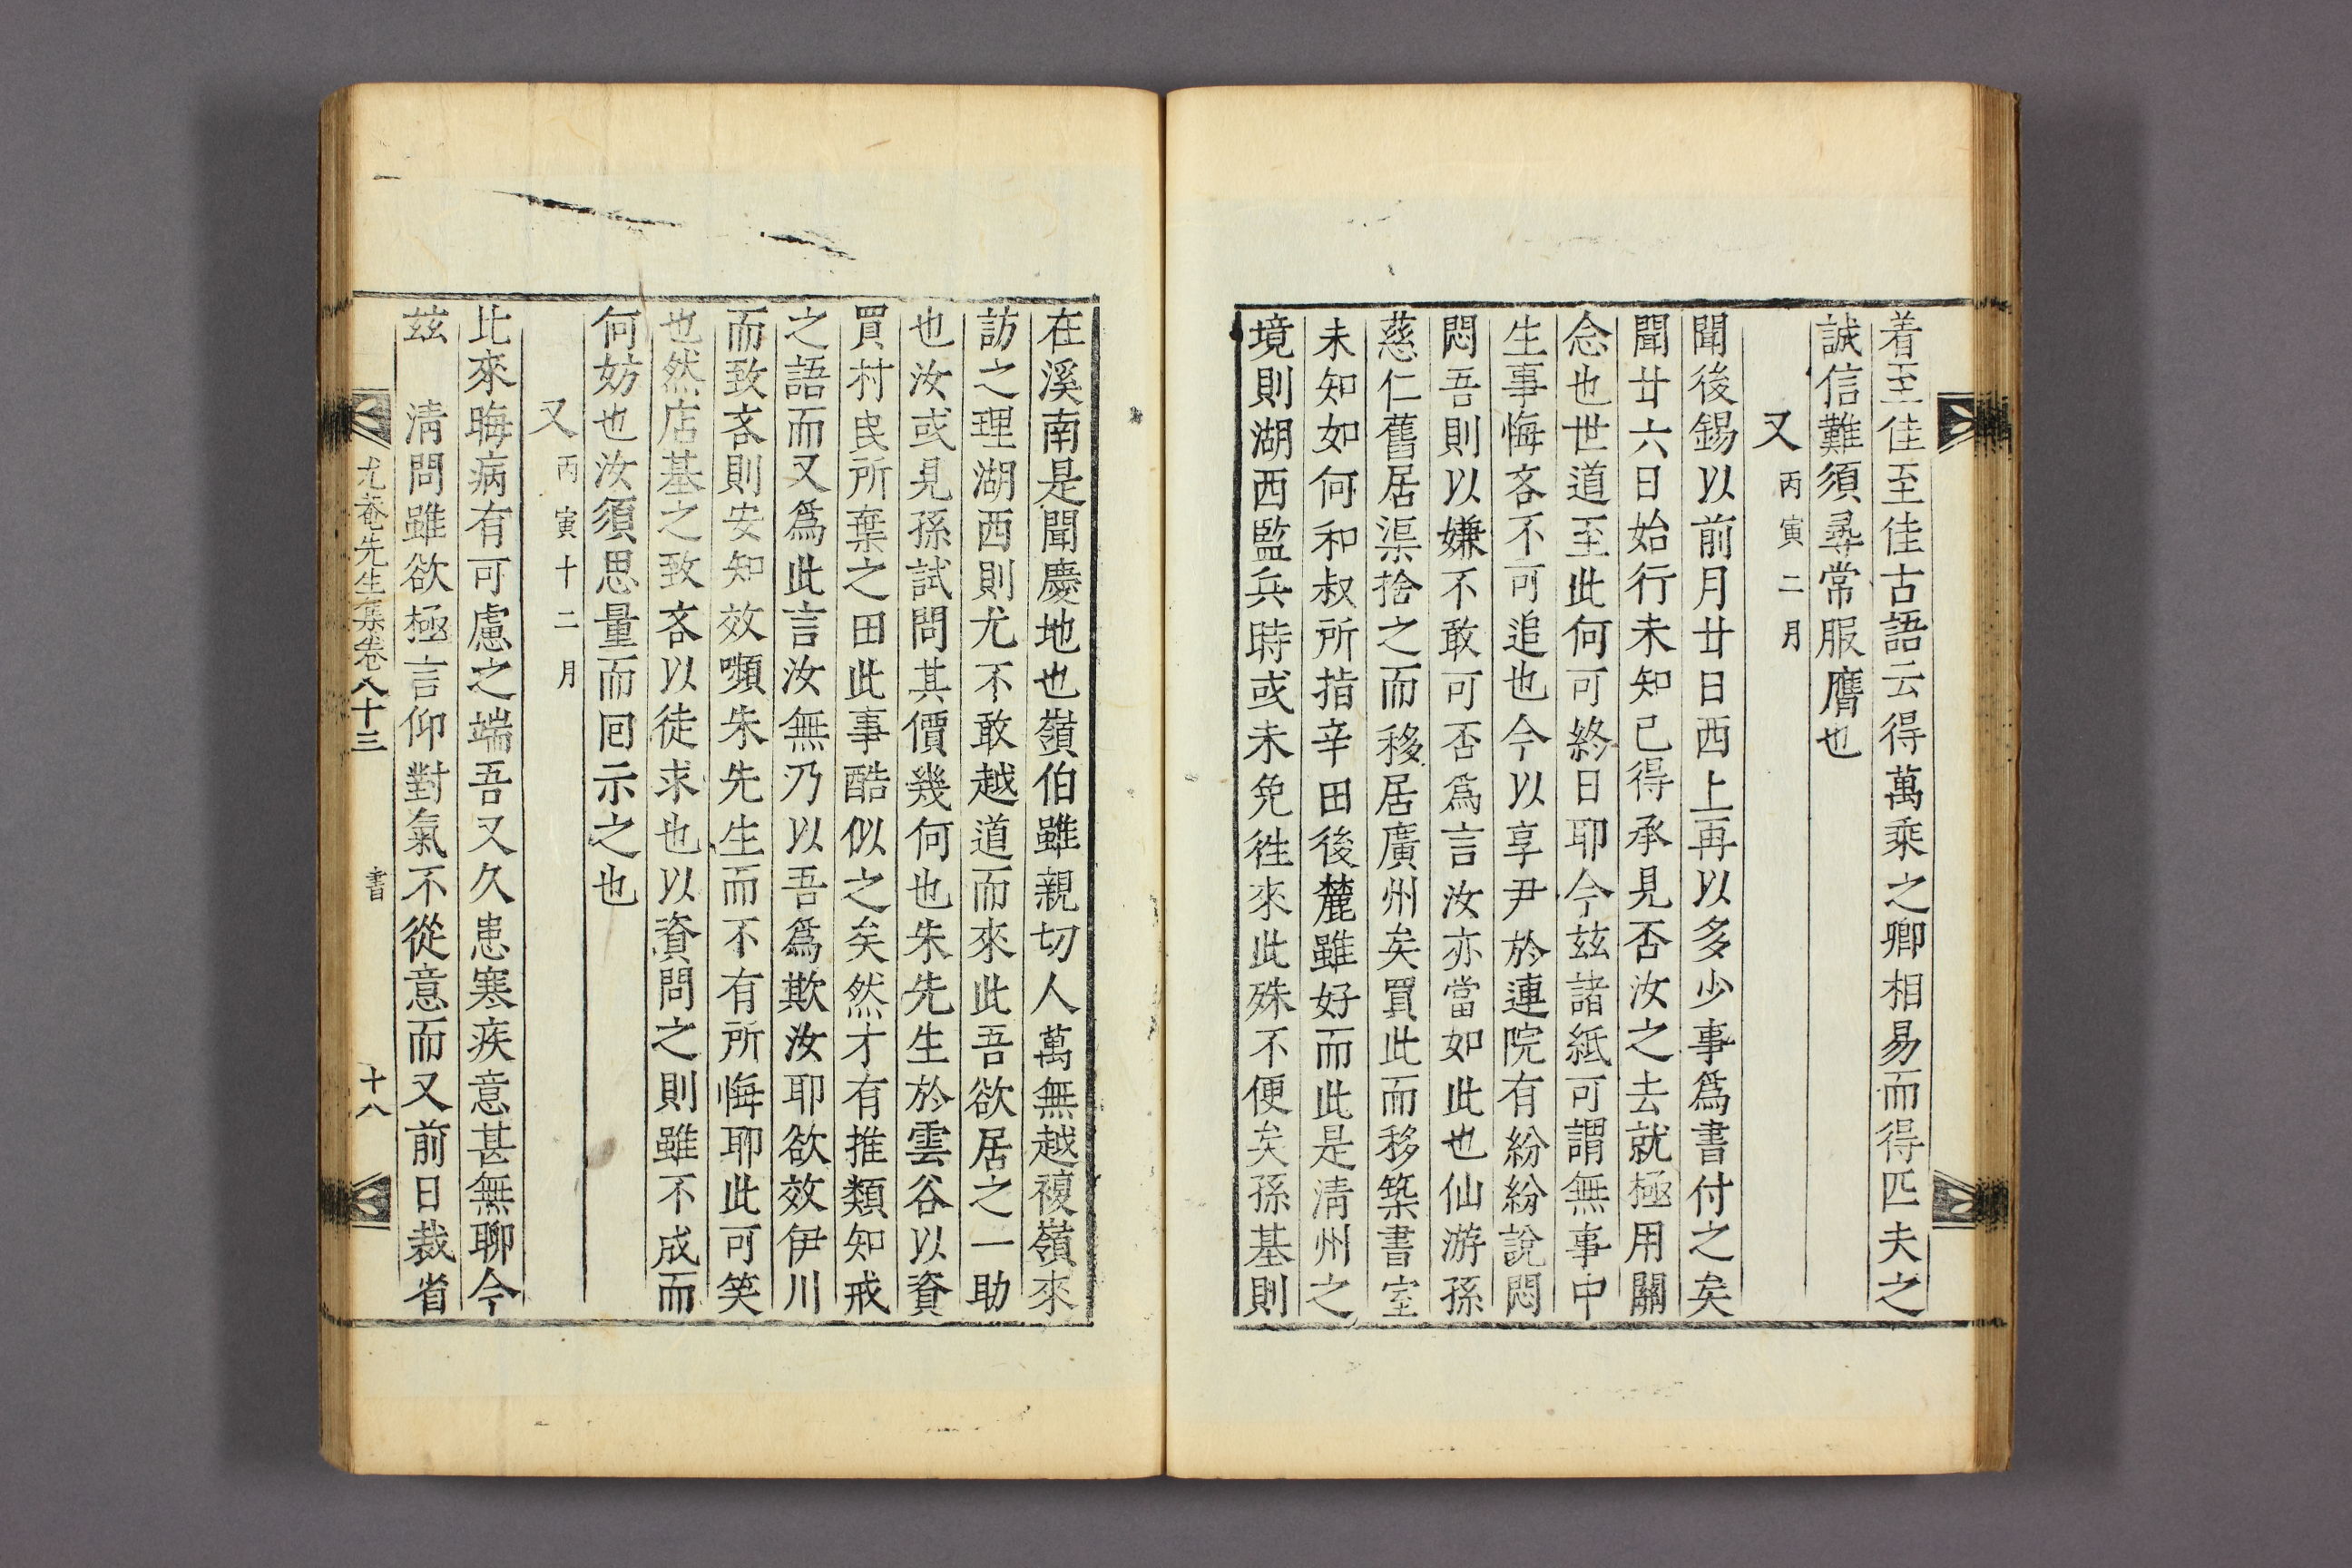 着至佳至佳古語云得萬乘之卿相易而得匹夫之
誠信難須尋常服膺也
又丙寅二月
聞後錫以前月廿日西上再以多少事爲書付之矣
聞廿六日始行未知已得承見否汝之去就極用關
念也世道至此何可終日耶今玆諸紙可謂無事中
生事悔吝不可追也今以享尹於連院有紛紛說悶
悶吾則以嫌不敢可否爲言汝亦當如此也仙游孫
慈仁舊居渠捨之而移居廣州矣買此而移築書室
未知如何和叔所指辛田後麓雖好而此是淸州之
境則湖西監兵時或未免徃來此殊不便矣孫基則
在溪南是聞慶地也嶺伯雖親切人萬無越複嶺來
訪之理湖西則尤不敢越道而來此吾欲居之一助
也汝或見孫試問其價幾何也朱先生於雲谷以資
買村民所棄之田此事酷似之矣然才有推類知戒
之語而又爲此言汝無乃以吾爲欺汝耶欲效伊川
而致吝則安知效嚬朱先生而不有所悔耶此可笑
也然店基之致吝以徒求也以資問之則雖不成而
何妨也汝須思量而回示之也
又丙寅十二月
此來晦病有可慮之端吾又久患寒疾意甚無聊今
玆　淸問雖欲極言仰對氣不從意而又前日裁省
尤菴先生集卷八十三　書　十八